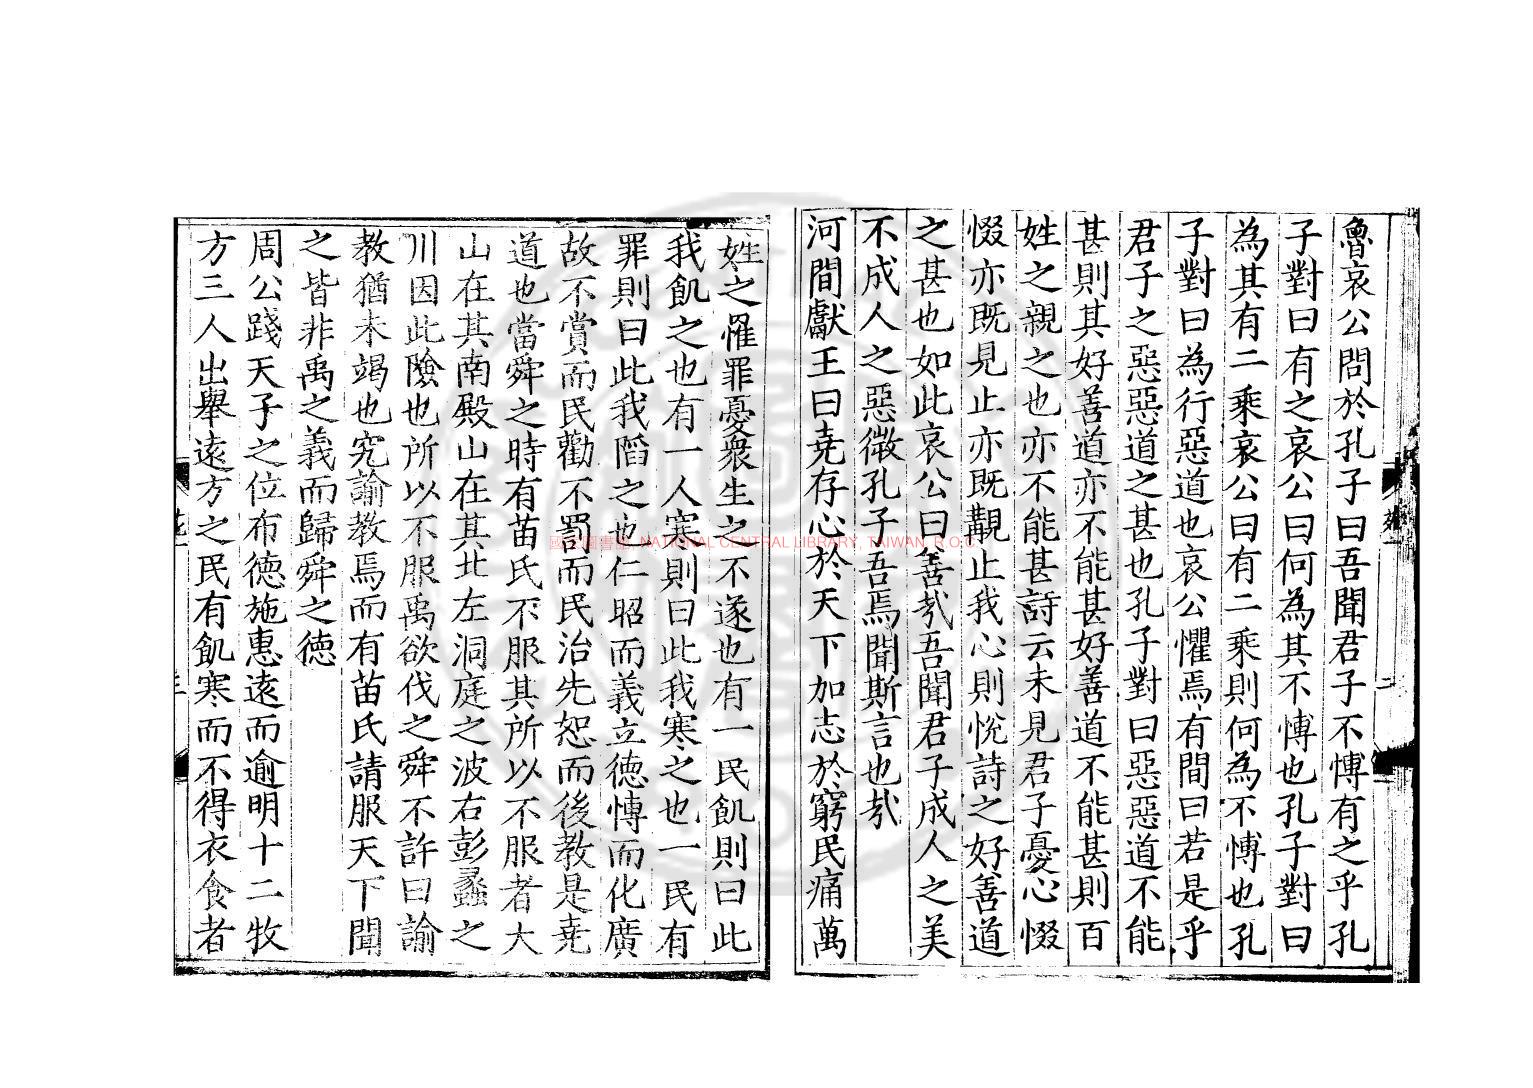 魯哀公問於孔子曰吾聞君子不愽有之乎孔
子對曰有之哀公曰何為其不愽也孔子對曰
為其有二乘哀公曰有二乘則何為不愽也孔
子對曰為行惡道也哀公懼焉有間曰若是乎
君子之惡惡道之甚也孔子對曰惡惡道不能
甚則其好善道亦不能甚好善道不能甚則百
姓之親之也亦不能甚詩云未見君子憂心惙
惙亦既見止亦既覯止我心則悅詩之好善道
之甚也如此哀公曰善㢤吾聞君子成人之美
不成人之惡微孔子吾焉聞斯言也㢤
河間獻王曰尭存心於天下加志於窮民痛萬
姓之罹罪憂衆生之不遂也有一民飢則曰此
我飢之也有一人寒則曰此我寒之也一民有
罪則曰此我陷之也仁昭而義立徳愽而化廣
故不賞而民勸不罰而民治先恕而後教是尭
道也當舜之時有苗氏不服其所以不服者大
山在其南殿山在其北左洞庭之波右彭蠡之
川因此險也所以不服禹欲伐之舜不許曰諭
教猶未竭也究諭教焉而有苗氏請服天下聞
之皆非禹之義而歸舜之徳
周公踐天子之位布徳施惠遠而逾明十二牧
方三人出舉遠方之民有飢寒而不得衣食者
國家圖書館, NATIONAL CENTRAL LIBRARY, TAIWAN, R.O.C